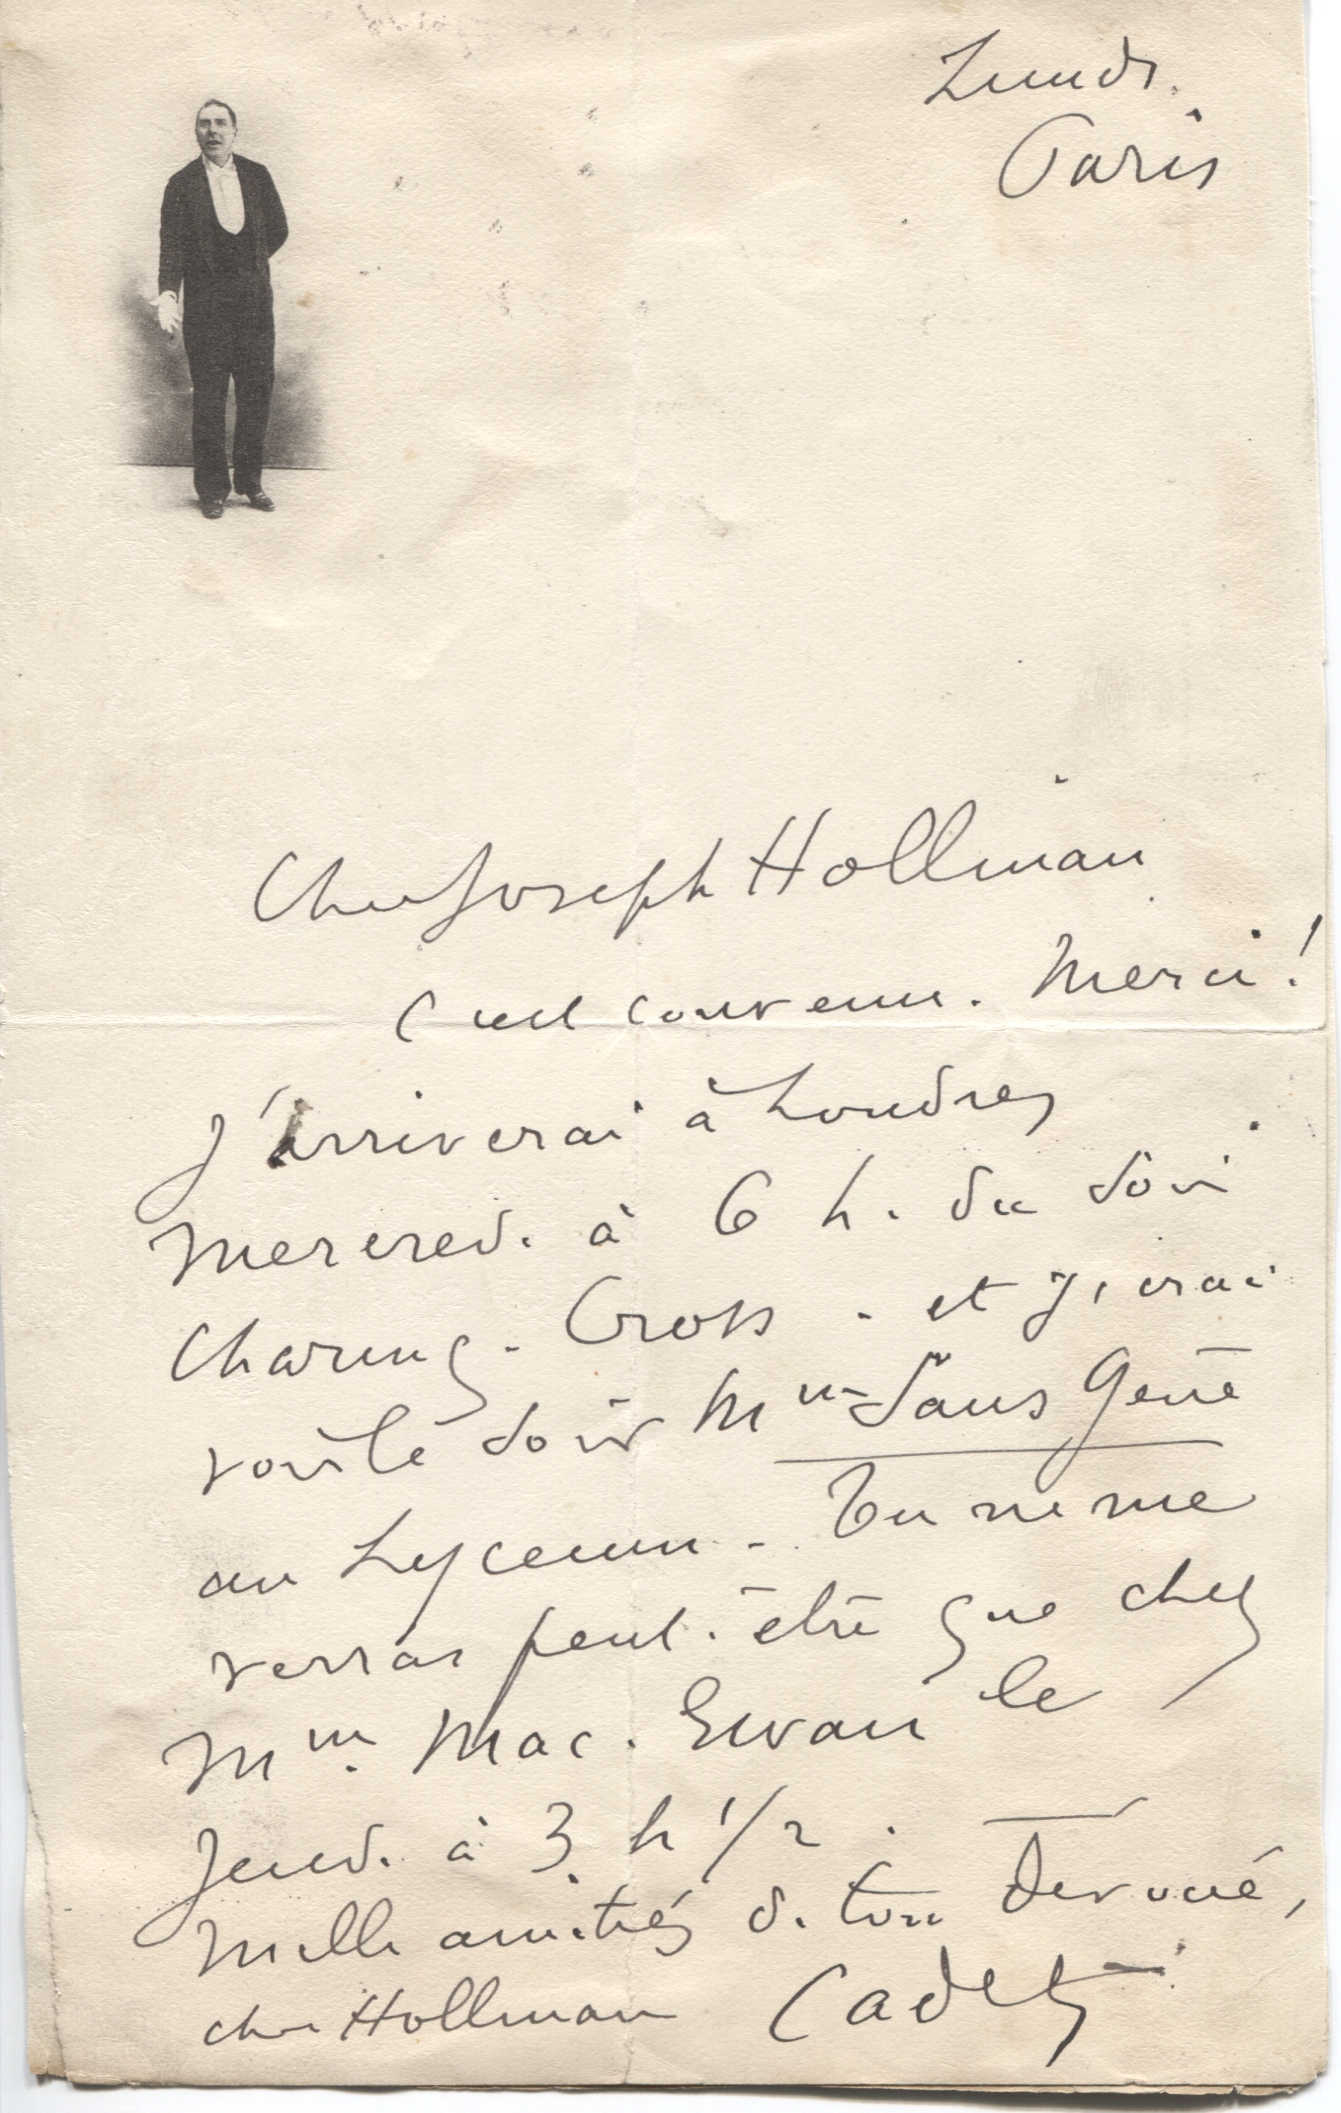 Lundi.
Paris
Cher Joseph Hollman
C'est convenu. Merci!
J'arriverai à Londres
Mercredi à 6 h. du soir
Charing-Cross. et j'irai
voir le soir Mme Sans Gêne
au Lyceum. Tu ne me
verras peut-être que chez
Mme Mac. Ewan le
Jeudi à 3 h 1/2.
Mille amitiés de ton dévoué,
cher Hollman Cadet